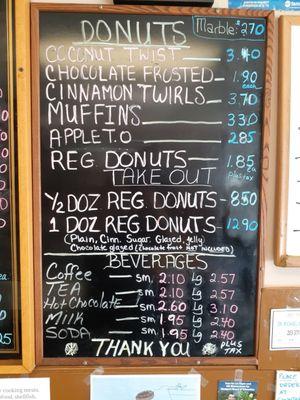 DONUTS Marble: $2.70
COCONUT TWIST 3.40
CHOCOLATE FROSTED 1.90 each
CINNAMON TWIRLS 3.70
MUFFINS 3.30
APPLE T.O 2.85
REG DONUTS 1.85 ea
TAKE OUT plus tax
1/2 DOZ REG DONUTS - 8.50
1 DOZ REG DONUTS - 12.90
(Plain, Cinn. Sugar, Glazed, Jelly)
Chocolate glazed (Chocolate frost NOT INCLUDED)
BEVERAGES
Coffee sm. 2.10 Lg. 2.57
TEA sm. 2.10 Lg. 2.57
Hot Chocolate sm. 2.60 Lg. 3.10
Milk sm. 1.95 Lg. 2.40
SODA sm. 1.95 Lg. 2.40
THANK YOU PLUS TAX
PLACE